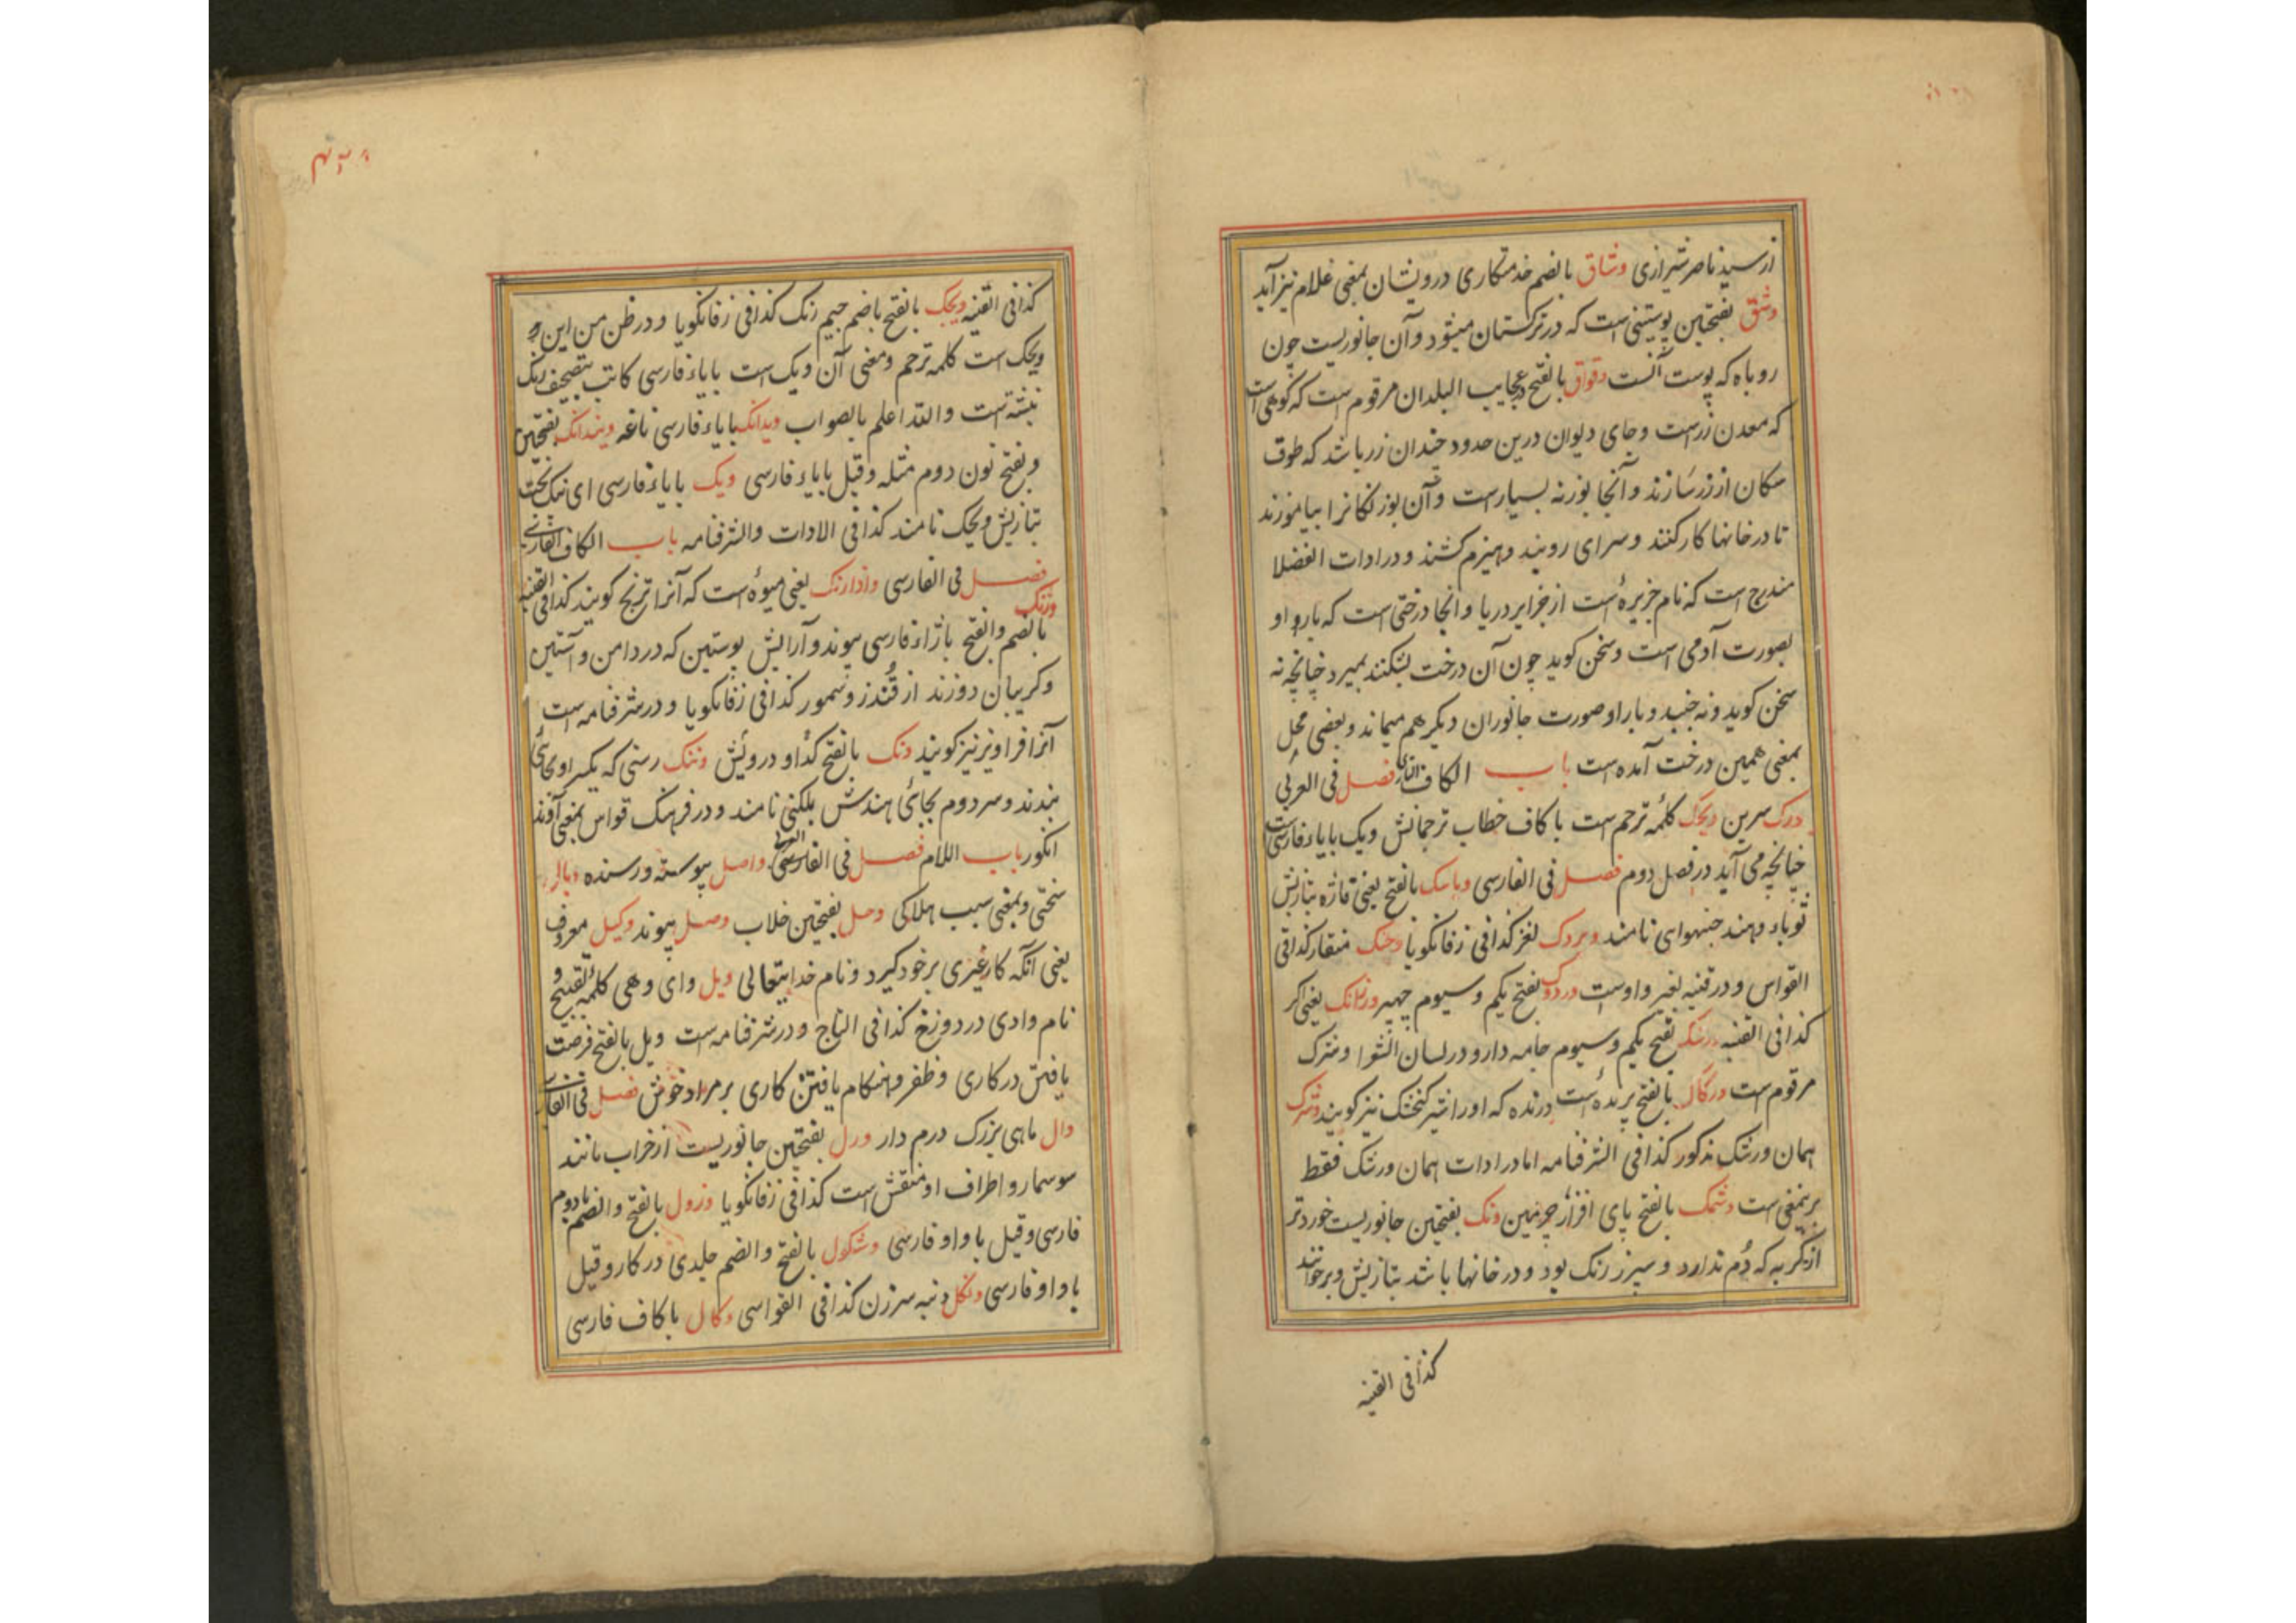 از سید ناصر شیرازی وشاق بالضم خدمتکاری درویشان بمعنی غلام نیز آید
وشق بفتحتین پوستینی است که در ترکستان میشود و آن جانوریست چون
روباه که پوست آنست وقواق بالفتح در عجایب البلدان مرقوم است که کوهی است
که معدن زرست و جای دیوان درین حدود چندان زر باشد که طوق
سکان از زر سازند و آنجا بوزنه بسیارست و آن بوزنکانرا بیاموزند
تا در خانها کار کنند و سرای روبند و هیزم کشند و در ادات الفضلا
مندرج است که نام جزیرهٔ است از جزایر دریا و آنجا درختی است که بار و او
بصورت آدمی است و سخن کوید چون آن درخت بشکنند بمیرد چنانچه نه
سخن کوید و نه جنبد و بار او صورت جانوران دیکر هم میماند و بعضی محل
بمعنی همین درخت آمده است باب الکاف التازی فصل فی العربی
ورک سرین ویحک کلمهٔ ترحم است با کاف خطاب ترجمانش ویک با یاء فارسی است
چنانچه می آید در فصل دوم فصل فی الفارسی وباسک بالفتح یعنی قازه بتازیش
ثوباء و هند جنبهوای نامند وبردک لغز کذا فی زفانکویا منقار کذا فی
القواس و در قنیه بغیر واوست وردوک بفتح یکم و سیوم جهیز ورنانک یعنی اکر
کذا فی القنیه بفتح یکم و سیوم جامه دار و در لسان الشعرا وشرک
مرقوم است ورکاک بالفتح پرندهٔ است درنده که اورا شیر کنجشک نیز کویند وشرک
همان ورشک مذکور کذا فی الشرفنامه اما در ادات همان ورشک فقط
برینمعنی است وشمک بالفتح پای افزار چرمین ونک بفتحتین جانوریست خوردتر
از کربه که دم ندارد و سبز رنک بود و در خانها باشد بتازیش وبر خوانند
کذا فی القنیه
کذا فی القنیه ویجک بالفتح با ضم جیم زنک کذا فی زفانکویا و در ظن من این و
ویحک است کلمه ترحم و معنی آن ویک است با یاء فارسی کاتب بتصحیف زنک
نبشته است والله اعلم بالصواب ویدانک با یاء فارسی ناغه ویندانک بفتحتین
و بفتح نون دوم مثله و قیل با یاء فارسی ویک با یاء فارسی ای نیک بخت
بتازیش ویحک نامند کذا فی الادات والشرفنامه باب الکاف الفارسی
فصل فی الفارسی وادارنک یعنی میوهٔ است که آنرا ترنج کویند کذا فی القنیه
وژنک
بالضم والفتح با ژاء فارسی پیوند و آرایش پوستین که در دامن و آستین
و کریبان دوزند از قندز و سمور کذا فی زفانکویا و در شرفنامه است
آنرا فراویز نیز کویند ونک بالفتح کدا و درویش وننک رسنی که یکسر او بجائی
بندند و سر دوم بجائی هندش بلکنی نامند و در فرهنک قواس بمعنی آوند
انکور باب اللام فصل فی العربی واصل پیوسته و رسنده وبال
سختی و بمعنی سبب هلاکی وحل بفتحتین خلاب وصل پیوند وکیل معروف
یعنی آنکه کار غیری بر خود کیرد و نام خدایتعالی ویل وای و هی کلمة تقبیح و
نام وادی در دوزخ کذا فی التاج و در شرفنامه است ویل بالفتح فرصت
یافتن در کاری و ظفر و هنکام یافتن کاری بر مراد خویش فصل فی الفارسی
وال ماهی بزرک درم دار ورل بفتحتین جانوریست از خراب مانند
سوسمار و اطراف او منقش است کذا فی زفانکویا وژول بالفتح والضم با دوم
فارسی و قیل با واو فارسی وشکول بالفتح والضم جلدی در کار و قیل
با واو فارسی ونکل دنبه سرزن کذا فی القواسی وکال با کاف فارسی